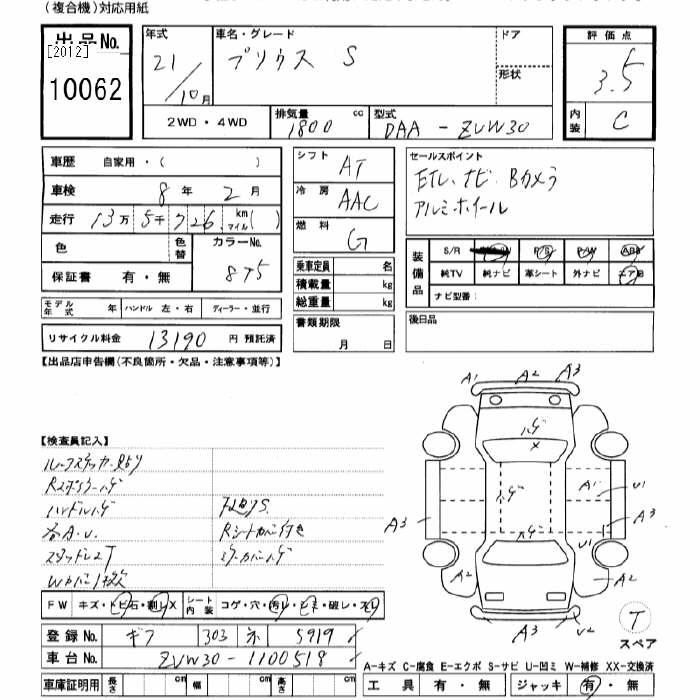 (複合機)対応用紙
出品No.
[2012]
10062
年式
21/10月
車名・グレード
プリウス S
ドア
形状
評価点
3.5
内装
C
2WD・4WD
排気量
1800 cc
型式
DAA-ZVW30
車歴 自家用・( )
車検 8年 2月
走行 13万5千726 km マイル( )
色
色替
カラーNo.
8T5
保証書 有・無
モデル年式 年
ハンドル 左・右
ディーラー・並行
リサイクル料金 13190円 預託済
シフト AT
冷房 AAC
燃料 G
乗車定員 名
積載量 kg
総重量 kg
書類期限
月 日
セールスポイント
ETC、ナビ Bカメラ
アルミホイール
装備品
S/R P/S P/W ABS
純TV 純ナビ 革シート 外ナビ エアB
ナビ型番:
後日品
【出品店申告欄(不良箇所・欠品・注意事項等)】
【検査員記入】
ハンドルハゲ
Rシートカバー付き
各A.U.
スタッドレスT
FW キズ・トビ石・割レX
シート内装 コゲ・穴・汚レ・シミ・破レ・スレ
登録No. ギフ 303 ネ 5919
車台No. ZVW30-1100518
車庫証明用 長さ cm 幅 cm 高さ cm
A1 A2 A3
ハゲ
X
A3
ハゲ
A1 U1
A3
ハゲ
U1
A2
A2
A3
U2
T
スペア
A-キズ C-腐食 E-エクボ S-サビ U-凹ミ W-補修 XX-交換済
工具 有・無 ジャッキ 有・無